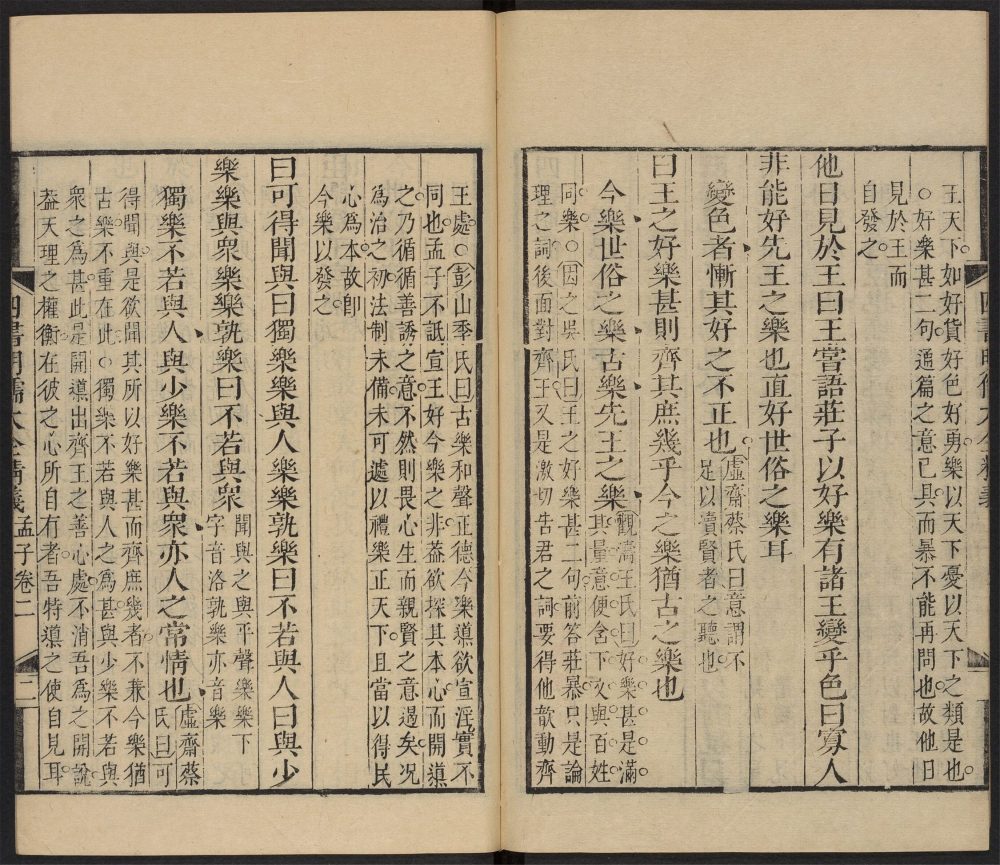 王天下如好貨好色好勇樂以天下憂以天下之類是也
○好樂甚二句通篇之意已具而暴不能再問也故他日
見於王而
自發之
他日見於王曰王嘗語莊子以好樂有諸王變乎色曰寡人
非能好先王之樂也直好世俗之樂耳
變色者慚其好之不正也
虛齋蔡氏曰意謂不
足以賣賢者之聽也
曰王之好樂甚則齊其庶幾乎今之樂猶古之樂也
今樂世俗之樂古樂先王之樂
觀濤王氏曰好樂甚是滿
其量意便含下文與百姓
同樂○因之吳氏曰王之好樂甚二句前答莊暴只是論
理之詞後面對齊王又是激切告君之詞要得他歆動齊
王處○彭山季氏曰古樂和聲正德今樂導欲宣淫實不
同也孟子不詆宣王好今樂之非葢欲探其本心而開導
之乃循循善誘之意不然則畏心生而親賢之意過矣况
為治之初法制未備未可遽以禮樂正天下且當以得民
心為本故卽
今樂以發之
曰可得聞與曰獨樂樂與人樂樂孰樂曰不若與人曰與少
樂樂與衆樂樂孰樂曰不若與衆
聞與之與平聲樂樂下
字音洛孰樂亦音樂
獨樂不若與人與少樂不若與衆亦人之常情也
虛齋蔡
氏曰可
得聞與是欲聞其所以好樂甚而齊庶幾者不兼今樂猶
古樂不重在此○獨樂不若與人之爲甚與少樂不若與
衆之爲甚此是開導出齊王之善心處不消吾爲之開說
葢天理之權衡在彼之心所自有者吾特導之使自見耳
四書明儒大全精義 孟子卷二 二